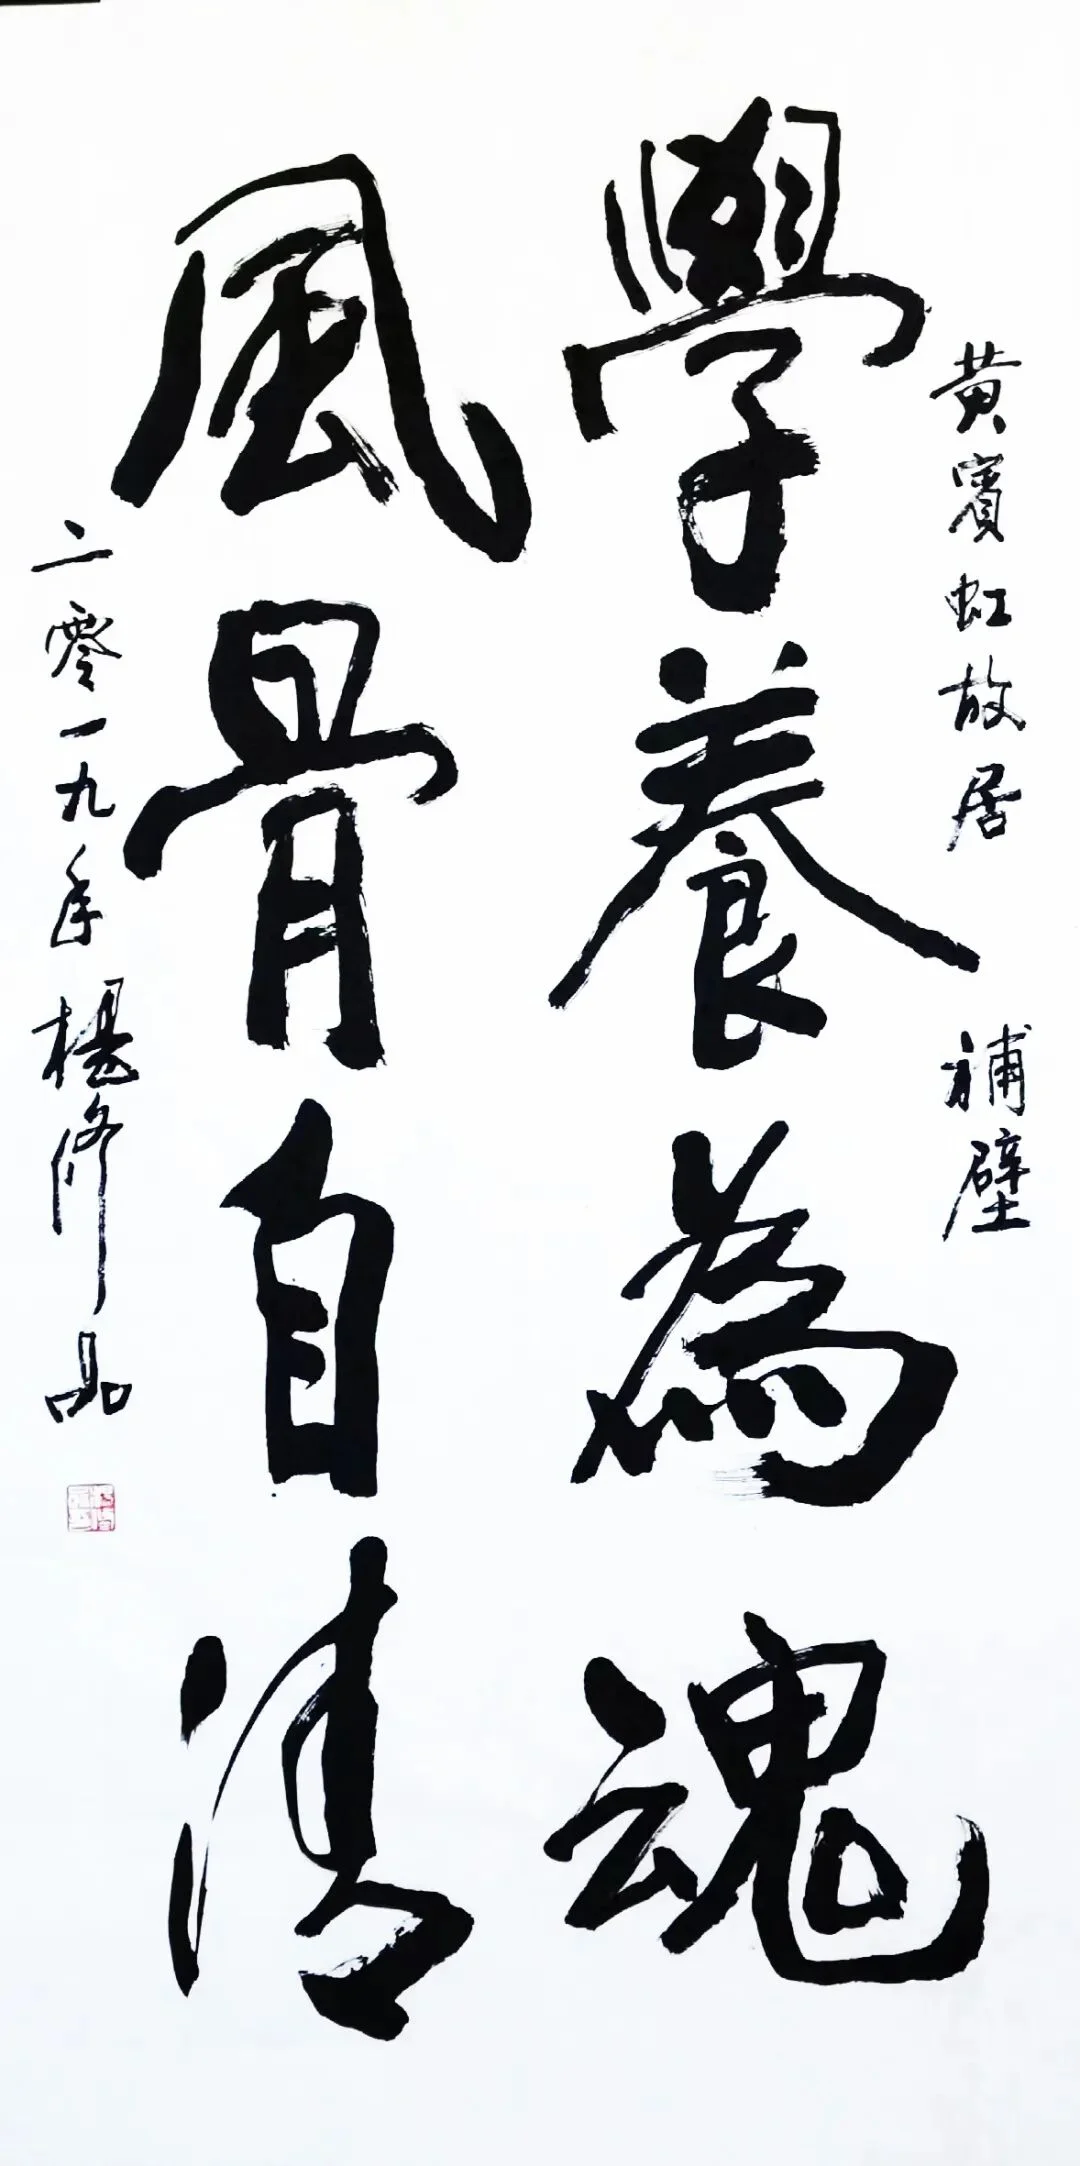 黄賓虹故居 補壁
學養為魂
風骨自清
二零一九年 楊修品